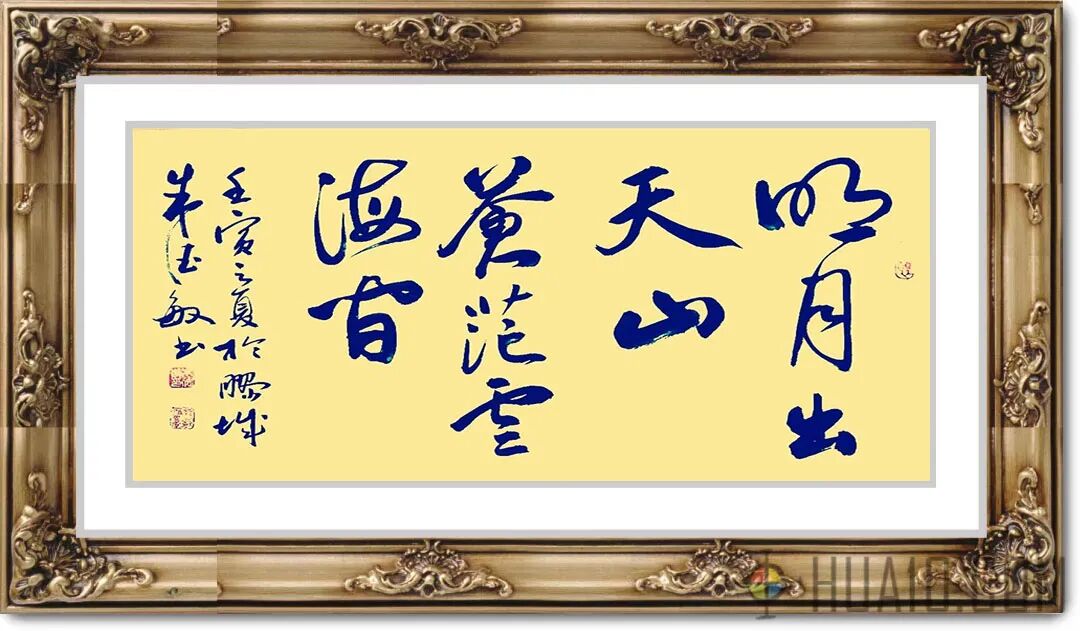 明月出
天山
蒼茫雲
海间
壬寅之夏於膠城
朱玉敏书
HUA10.COM